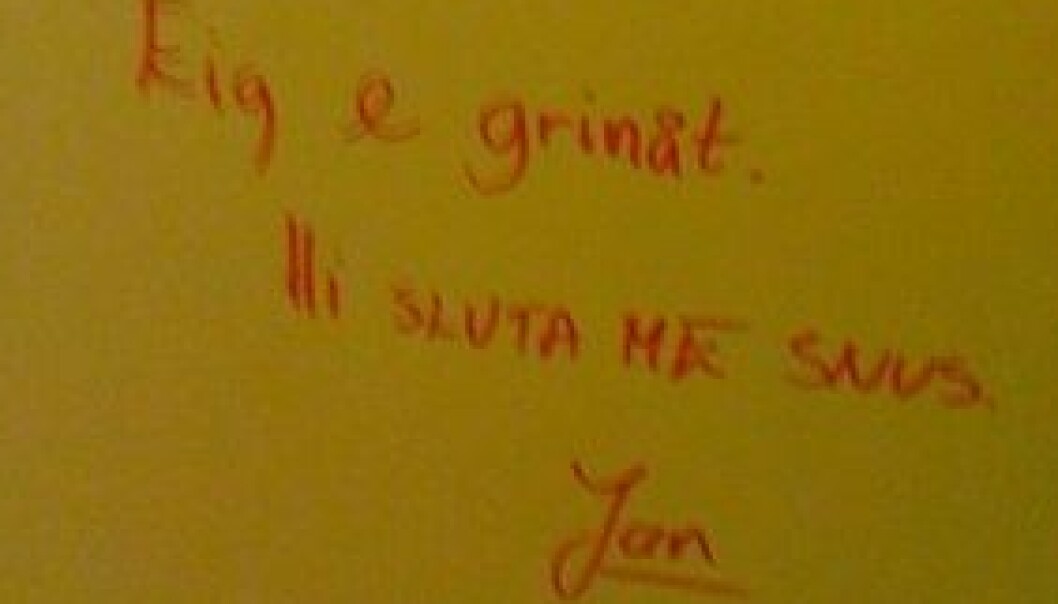 Eig e grinåt.
Hi SLUTA MÆ SNUS.
Jan